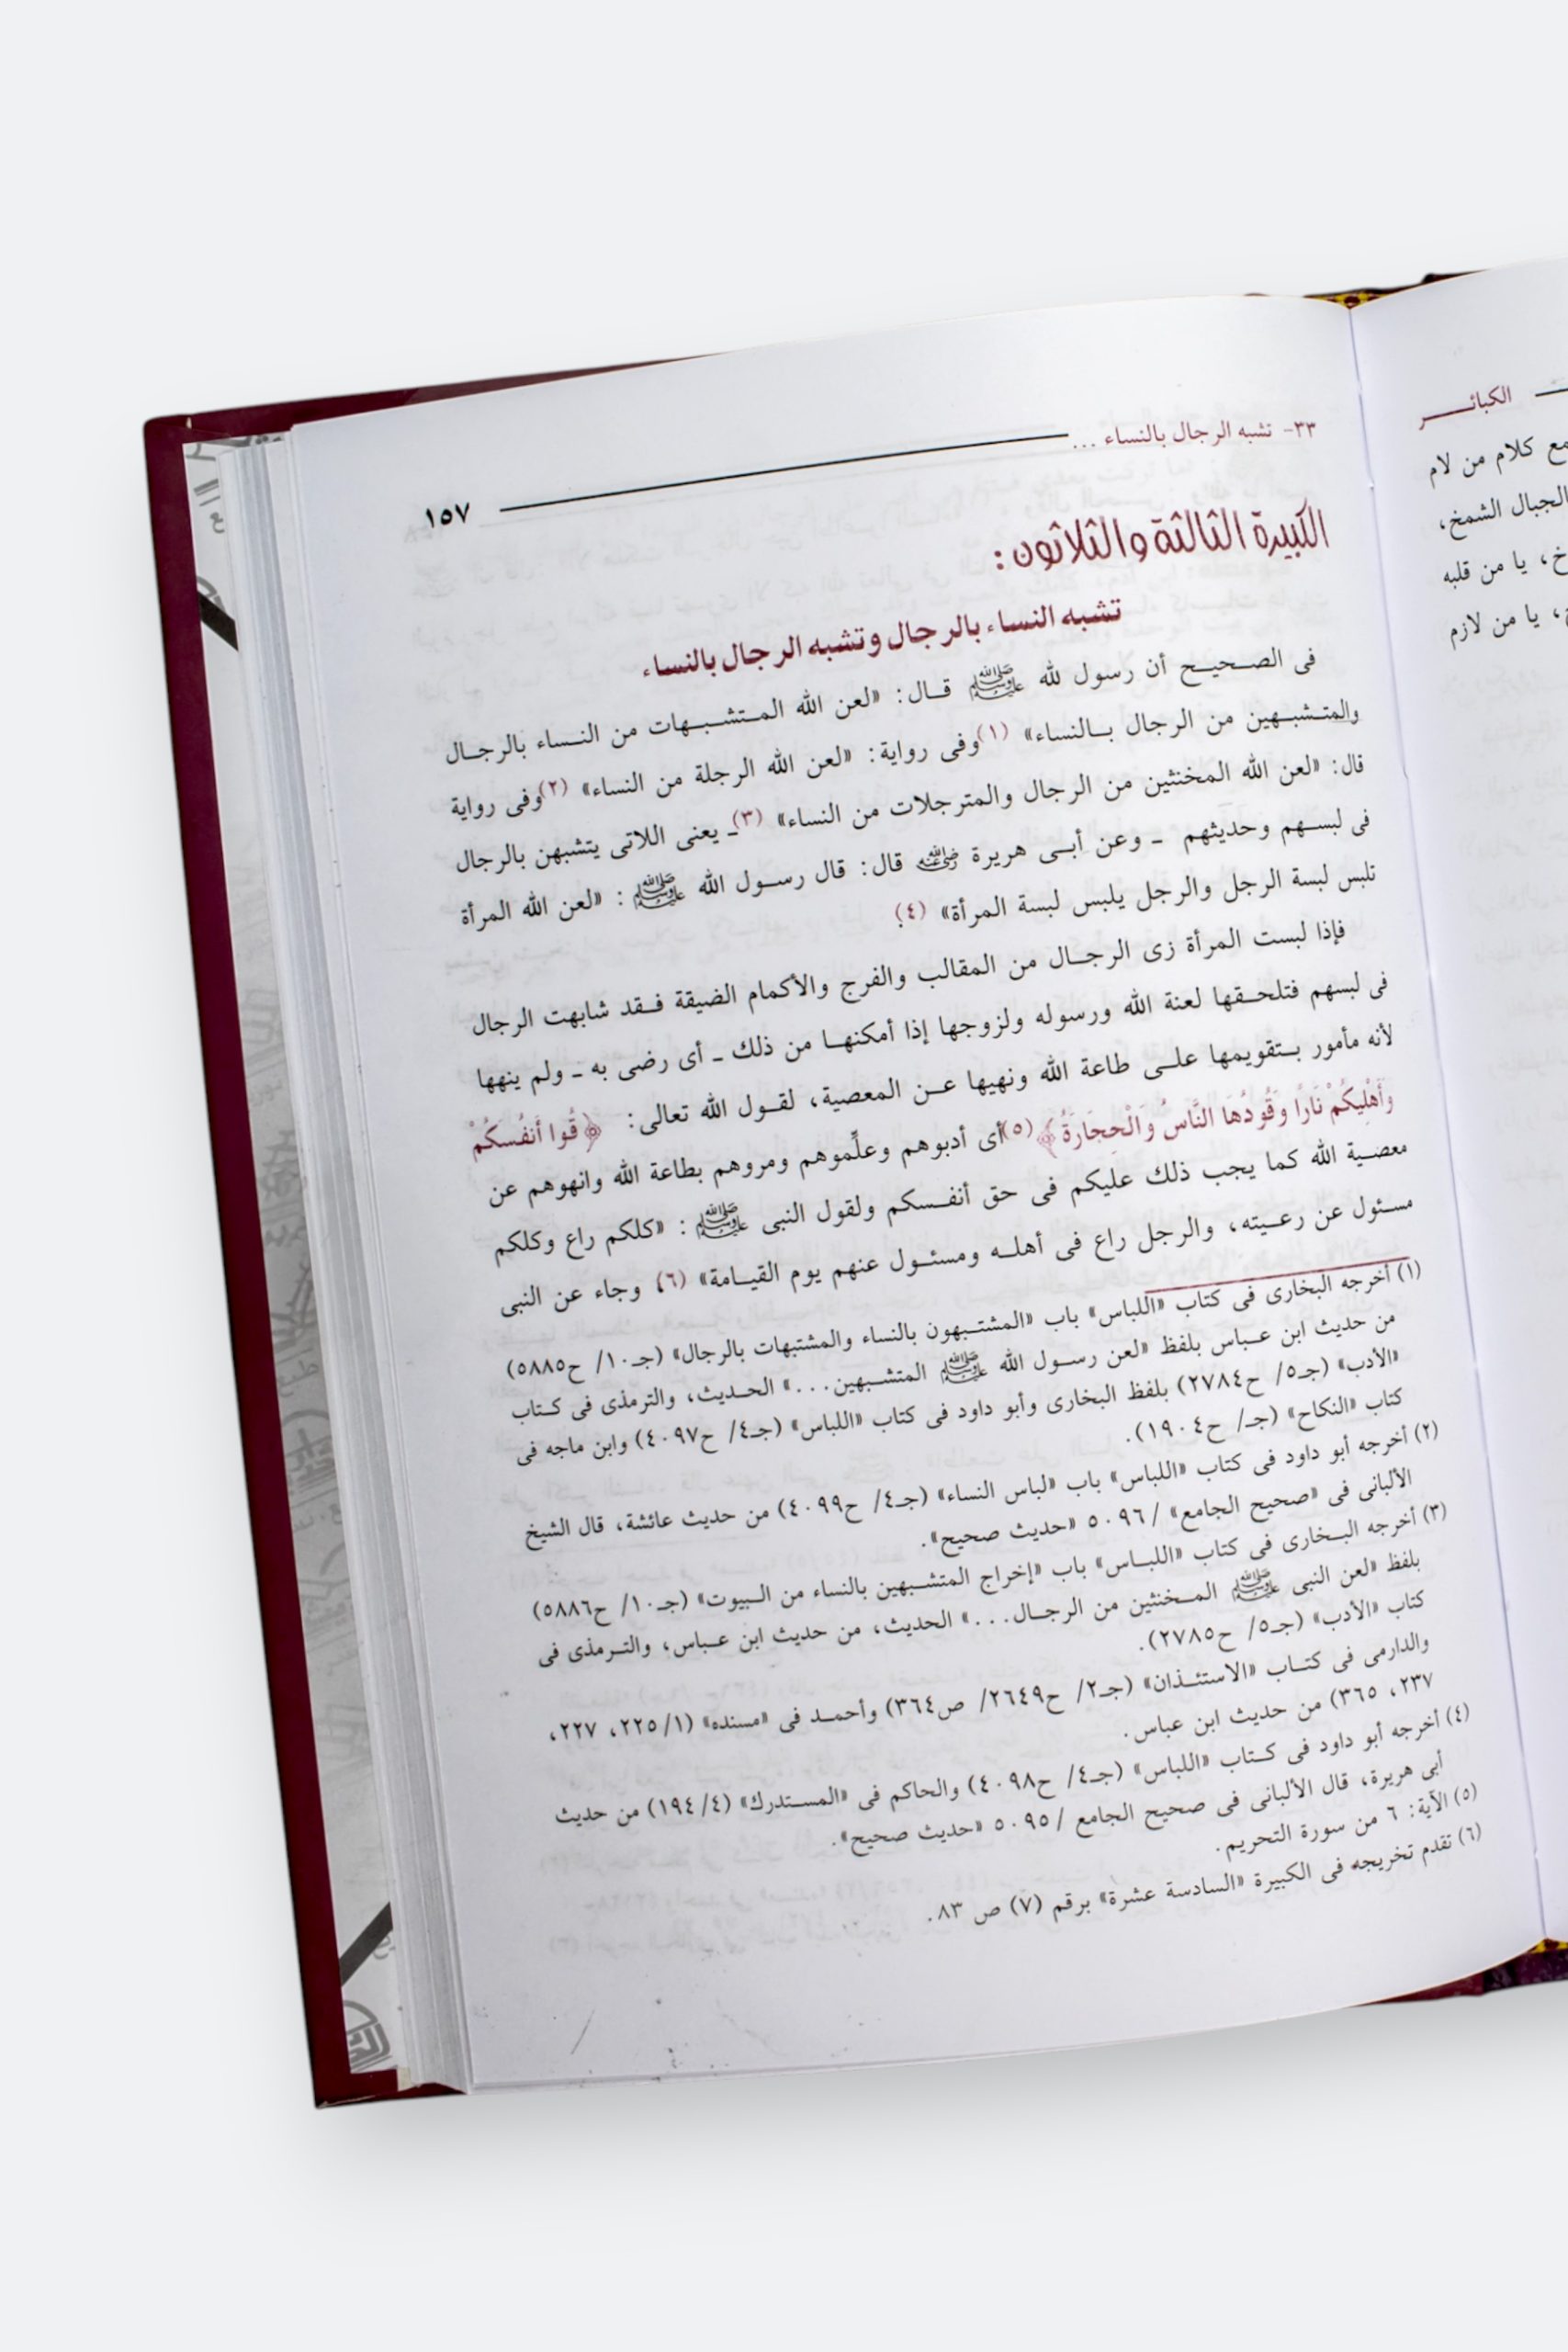 الكبائـــــر
مع كلام من لام
الجبال الشمخ،
خ، يا من قلبه
، يا من لازم
٣٣- تشبه الرجال بالنساء ...
١٥٧
الكبيرة الثالثة والثلاثون:
تشبه النساء بالرجال وتشبه الرجال بالنساء
فى الصحيح أن رسول لله ﷺ قال: «لعن الله المتشبهات من النساء بالرجال
والمتشبهين من الرجال بالنساء» (١) وفى رواية: «لعن الله الرجلة من النساء» (٢) وفى رواية
قال: «لعن الله المخنثين من الرجال والمترجلات من النساء» (٣) ـ يعنى اللاتى يتشبهن بالرجال
فى لبسهم وحديثهم ـ وعن أبى هريرة رضي الله عنه قال: قال رسول الله ﷺ : «لعن الله المرأة
تلبس لبسة الرجل والرجل يلبس لبسة المرأة» (٤).
فإذا لبست المرأة زى الرجال من المقالب والفرج والأكمام الضيقة فقد شابهت الرجال
فى لبسهم فتلحقها لعنة الله ورسوله ولزوجها إذا أمكنها من ذلك ـ أى رضى به ـ ولم ينهها
لأنه مأمور بتقويمها على طاعة الله ونهيها عن المعصية، لقول الله تعالى: ﴿قُوا أَنفُسَكُمْ
وَأَهْلِيكُمْ نَارًا وَقُودُهَا النَّاسُ وَالْحِجَارَةُ﴾ (٥) أى أدبوهم وعلِّموهم ومروهم بطاعة الله وانهوهم عن
معصية الله كما يجب ذلك عليكم فى حق أنفسكم ولقول النبى ﷺ : «كلكم راع وكلكم
مسئول عن رعيته، والرجل راع فى أهله ومسئول عنهم يوم القيامة» (٦)، وجاء عن النبى
(١) أخرجه البخارى فى كتاب «اللباس» باب «المشتبهون بالنساء والمشتبهات بالرجال» (جـ١٠/ ح٥٨٨٥)
من حديث ابن عباس بلفظ «لعن رسول الله ﷺ المتشبهين...» الحديث، والترمذى فى كتاب
«الأدب» (جـ٥/ ح٢٧٨٤) بلفظ البخارى وأبو داود فى كتاب «اللباس» (جـ٤/ ح٤٠٩٧) وابن ماجه فى
كتاب «النكاح» (جـ/ ح١٩٠٤).
(٢) أخرجه أبو داود فى كتاب «اللباس» باب «لباس النساء» (جـ٤/ ح٤٠٩٩) من حديث عائشة، قال الشيخ
الألبانى فى «صحيح الجامع» / ٥٠٩٦ «حديث صحيح».
(٣) أخرجه البخارى فى كتاب «اللباس» باب «إخراج المتشبهين بالنساء من البيوت» (جـ١٠/ ح٥٨٨٦)
بلفظ «لعن النبى ﷺ المخنثين من الرجال...» الحديث، من حديث ابن عباس، والترمذى فى
كتاب «الأدب» (جـ٥/ ح٢٧٨٥).
والدارمى فى كتاب «الاستئذان» (جـ٢/ ح٢٦٤٩/ ص٣٦٤) وأحمد فى «مسنده» (٢٢٥/١، ٢٢٧،
٢٣٧، ٣٦٥) من حديث ابن عباس.
(٤) أخرجه أبو داود فى كتاب «اللباس» (جـ٤/ ح٤٠٩٨) والحاكم فى «المستدرك» (١٩٤/٤) من حديث
أبى هريرة، قال الألبانى فى صحيح الجامع / ٥٠٩٥ «حديث صحيح».
(٥) الآية: ٦ من سورة التحريم.
(٦) تقدم تخريجه فى الكبيرة «السادسة عشرة» برقم (٧) ص ٨٣.